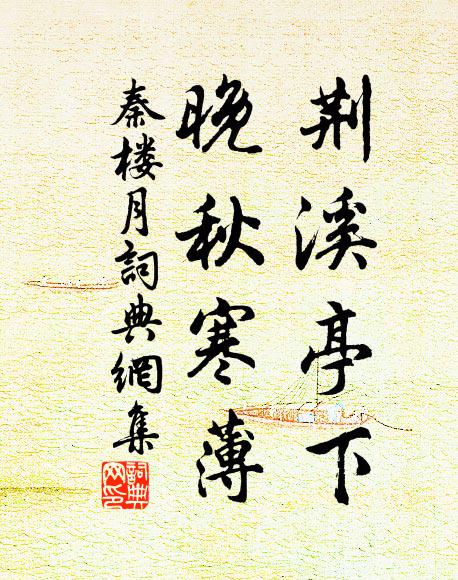 荆溪亭下
晚秋寒薄
秦楼月詞典網集
詞典网印